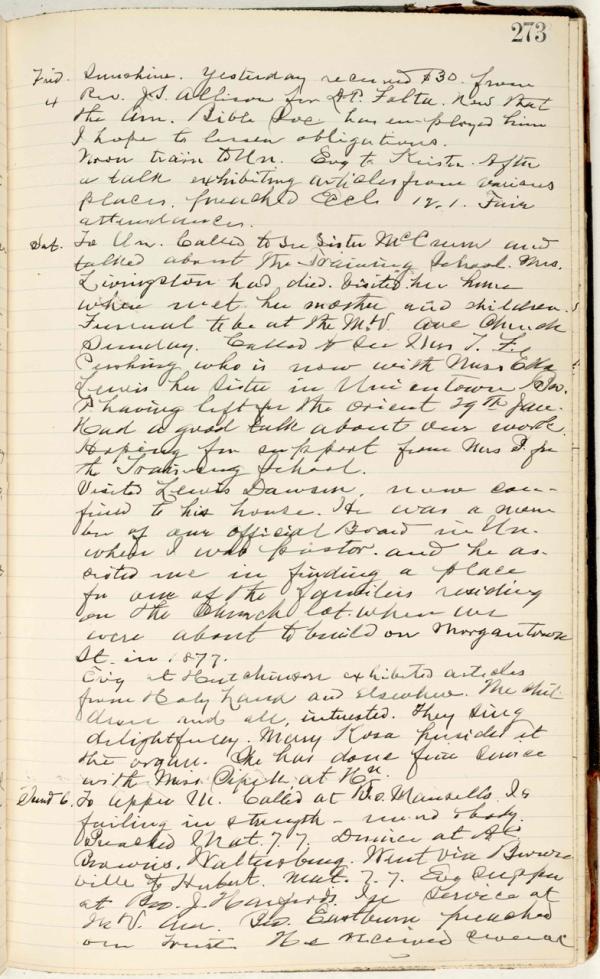 273
Frid. Sunshine. Yesterday received $30. from
4 Rev. J.S. Allison for Folta. New that
the Am. Bible Soc. has employed him
I hope to lessen obligations.
Noon train to Un. Evg to Keister. After
a talk exhibiting articles from various
places, preached Eccls 12.1. Fair
attendances.
Sat. To Un. Called to see Sister McCrum and
talked about the Training School. Mrs.
Livingston had died. Visited her home
where met her mother and children.
Funeral to be at the Ave Church
Sunday. Called to see Mrs J. F.
Cushing who is now with Miss Ella
Lewis her sister in Uniontown Bro.
having left for the orient 29th Jan.
Had a good talk about our work.
Hoping for support from Mrs for
th Training School.
Visited Lewis Dawson, now con-
fined to his house. He was a mem
ber of our official Board in Un.
when I was pastor. and he as-
sisted me in finding a place
for one of the families residing
on the Church lot. when we
were about to build on Morgantown
St. in 1877.
Evg at Hutchinson exhibited articles
from Holy Land and elsewhere. The chil-
dren and all, interested. They sing
delightfully. Mary Kosa presides at
the organ. She has done fine service
with Miss at
Sund 6. To Upper M. Called at Bro. Mansells. Is
failing in strength - mind & body.
Preached Mat. 7.7. Dinner at
Browns. Waltersburg. Went via Browns
ville to Hubert. Mat. 7.7. Evg supper
at Bro. J. In Service at
Ave. Eastburn preached
our trust He received several